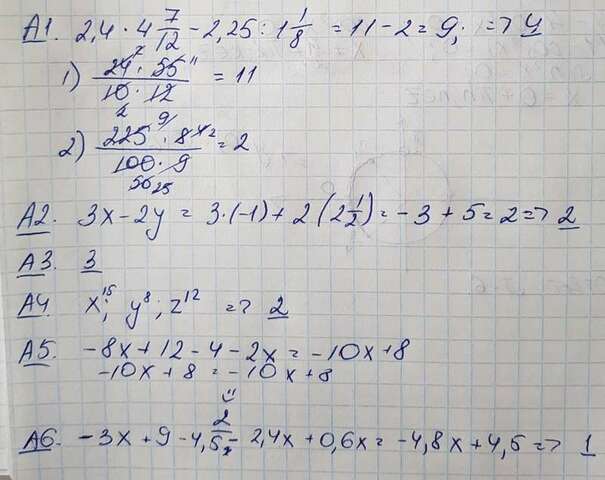 A1. 2,4 · 4 7/12 - 2,25 : 1 1/8 = 11 - 2 = 9; => 4
1) 24 · 55 / 10 · 12 = 11
2) 225 · 8 / 100 · 9 = 2
A2. 3x - 2y = 3·(-1) + 2 (2 1/2) = -3 + 5 = 2 => 2
A3. 3
A4. x^15; y^8; z^12 => 2
A5. -8x + 12 - 4 - 2x = -10x + 8
-10x + 8 = -10x + 8
2
A6. -3x + 9 - 4,5 - 2,4x + 0,6x = -4,8x + 4,5 => 1